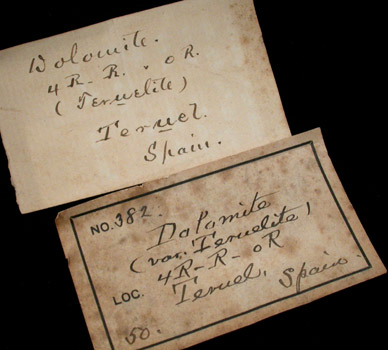 Dolomite.
4R_R. . oR.
(Teruelite)
Teruel.
Spain.
NO. 382.
Dolomite
(var. Teruelite)
4R_R_ oR
LOC. Teruel, Spain.
50.